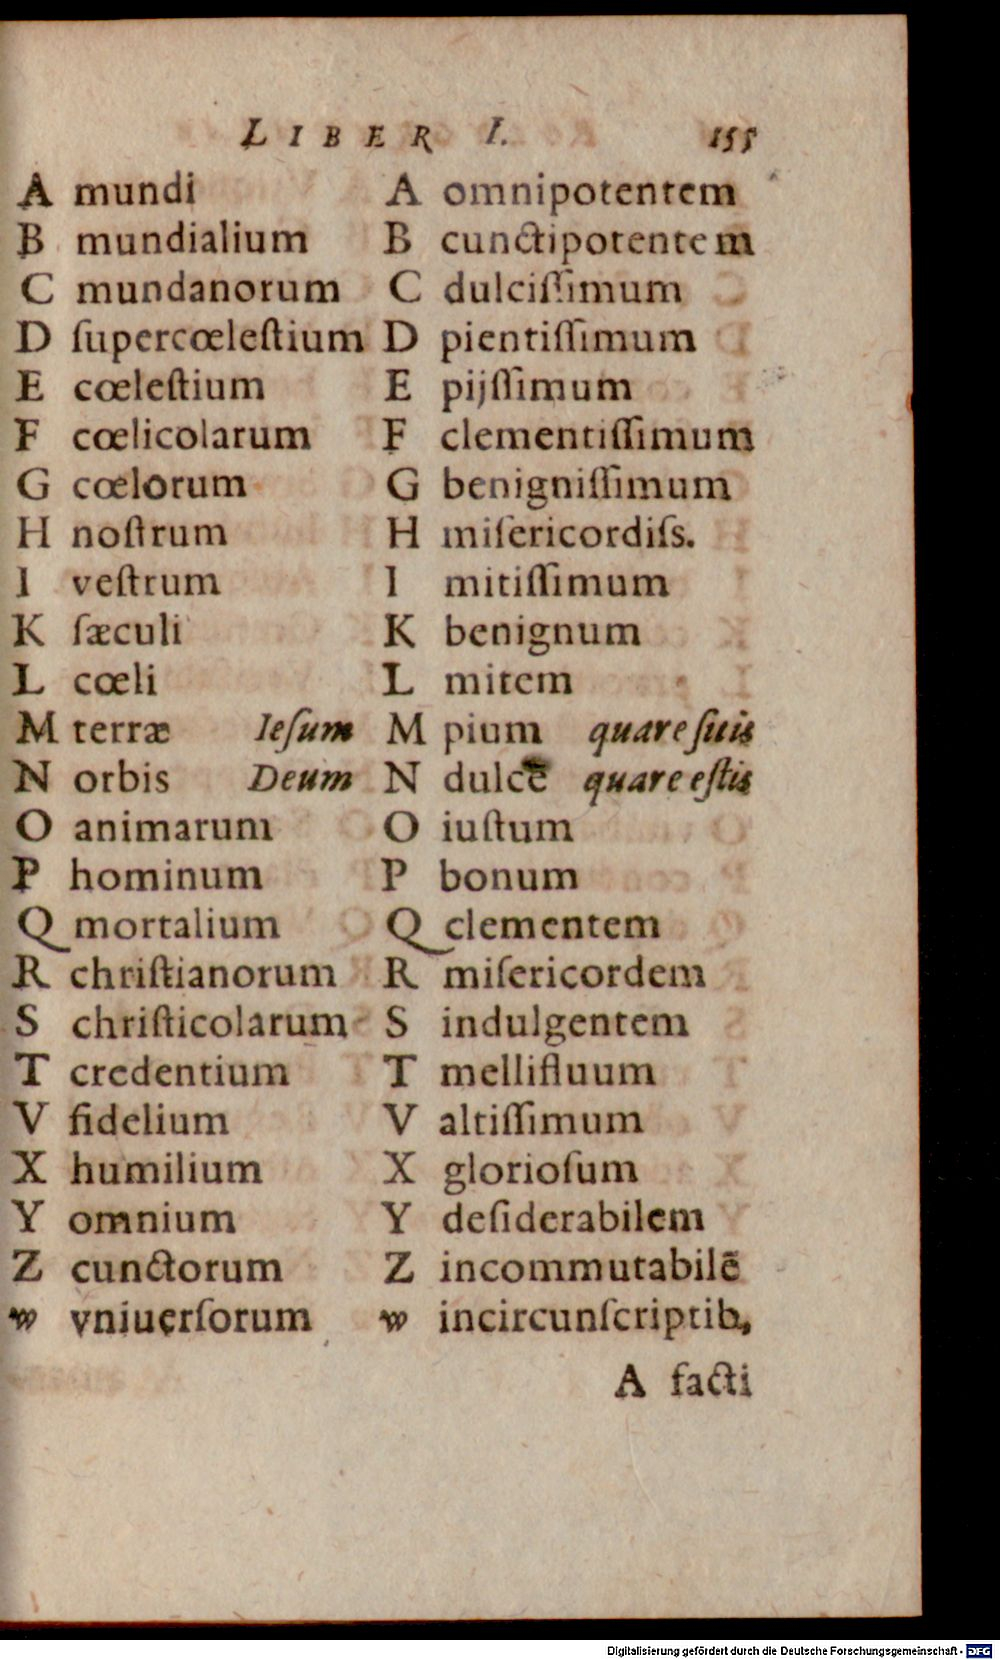 LIBER I. 155
A mundi A omnipotentem
B mundialium B cunctipotentem
C mundanorum C dulciſſimum
D ſupercœleſtium D pientiſſimum
E cœleſtium E pijſſimum
F cœlicolarum F clementiſſimum
G cœlorum G benigniſſimum
H noſtrum H miſericordiſs.
I veſtrum I mitiſſimum
K ſæculi K benignum
L cœli L mitem
M terræ Ieſum M pium quare ſuis
N orbis Deum N dulcē quare eſtis
O animarum O iuſtum
P hominum P bonum
Q mortalium Q clementem
R chriſtianorum R miſericordem
S chriſticolarum S indulgentem
T credentium T mellifluum
V fidelium V altiſſimum
X humilium X glorioſum
Y omnium Y deſiderabilem
Z cunctorum Z incommutabilē
w vniuerſorum w incircunſcriptib,
A facti
Digitalisierung gefördert durch die Deutsche Forschungsgemeinschaft - DFG